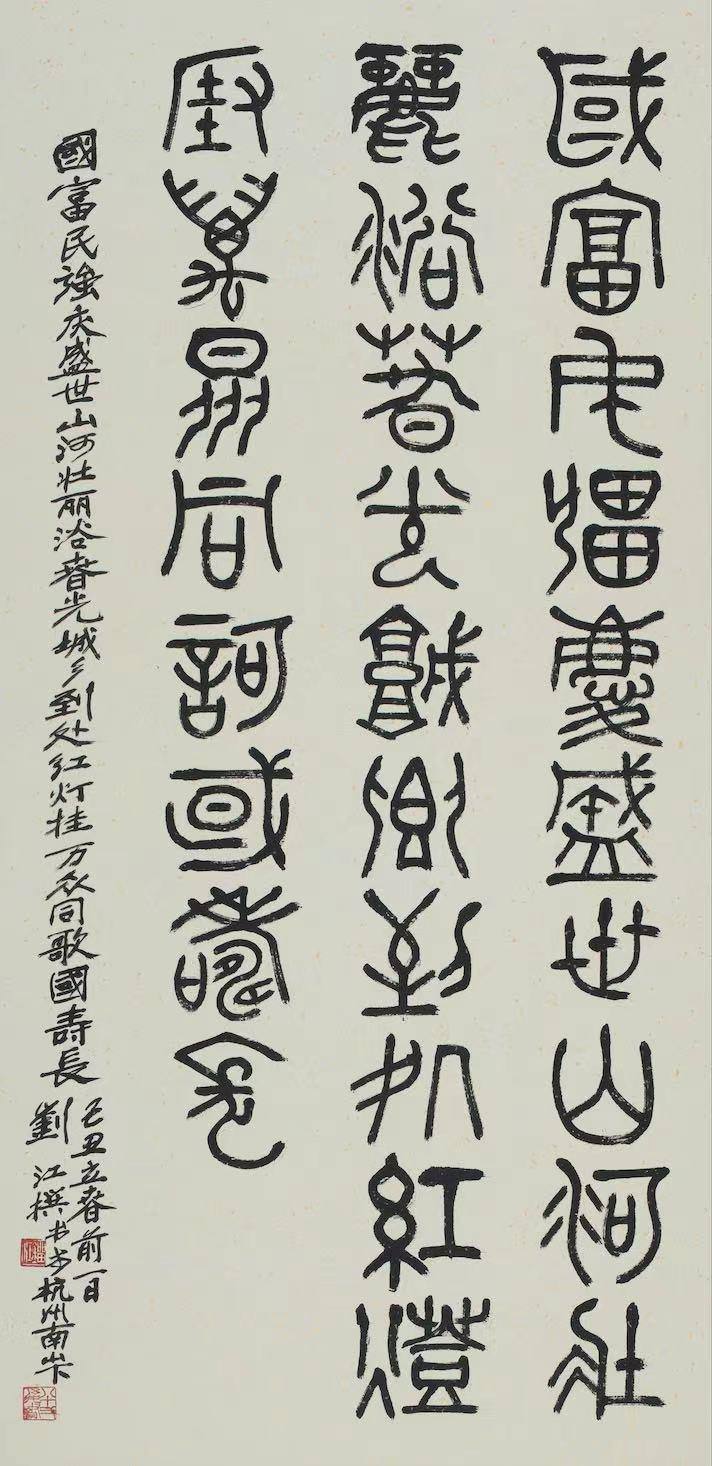 國富民彊慶盛世山河壯
麗浴萅光城鄉到処紅燈
挂萬眾同訶國壽長
國富民強庆盛世山河壮丽浴春光城乡到处红灯挂万众同歌國寿長
己丑立春前一日
劉江撰书于杭州南山下